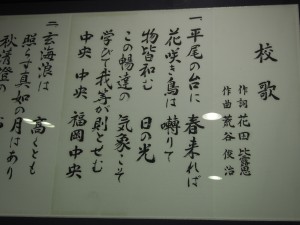 校歌
作詞 花田 比露思
作曲 荒谷 俊治
一 平尾の台に 春来れば
花咲き鳥は 囀りて
物皆和む 日の光
この暢達の 気象こそ
学びて我等が 則とせむ
中央 中央 福岡中央
二 玄海浪は 高くとも
照らす真如の 月はあり
秋清澄の